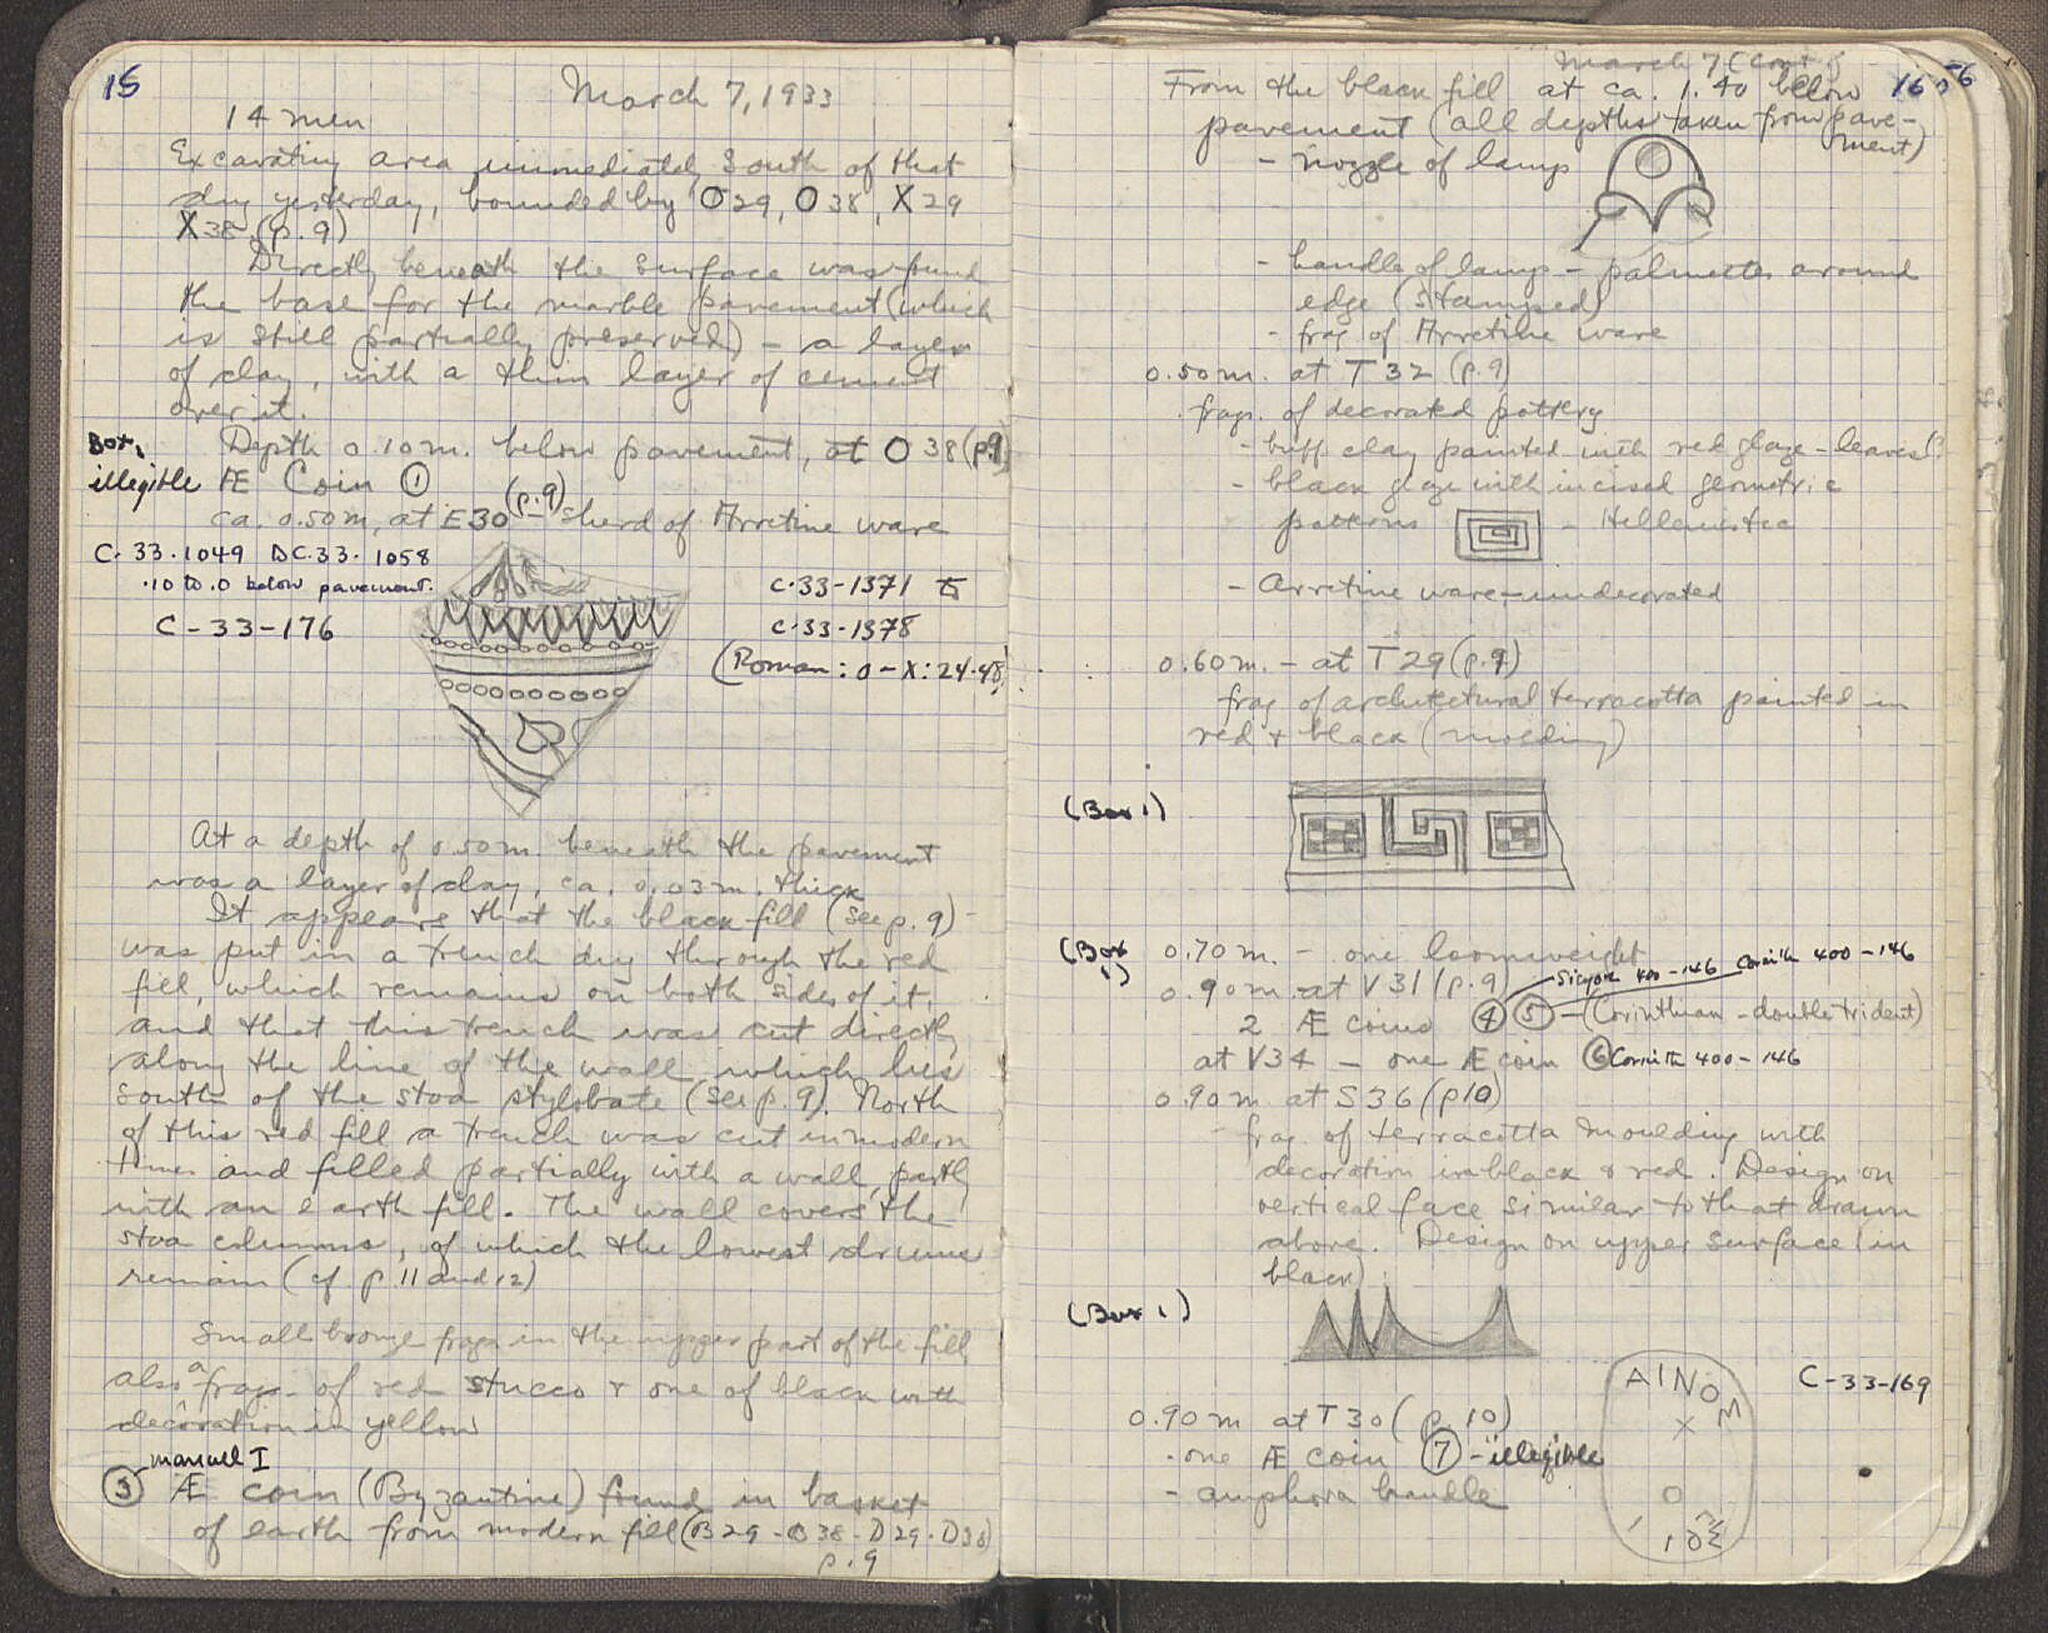 15
March 7, 1933
14 men
Excavating area immediately South of that
dug yesterday, bounded by O29, O38, X29
X38 (p. 9)
Directly beneath the surface was found
the base for the marble pavement (which
is still partially preserved) – a layer
of clay, with a thin layer of cement
over it.
Depth 0.10 m. below pavement, at O 38 (p.9)
Box 1
illegible Æ Coin ①
ca. 0.50 m, at E30 (p.9) – sherd of Arretine ware
C. 33.1049 DC.33. 1058
.10 to .0 below pavement.
C-33-176
C-33-1371
C-33-1378
(Roman: O-X: 24-48)
At a depth of 0.50 m. beneath the pavement
was a layer of clay, ca. 0.03 m. thick
It appears that the black fill (see p. 9)
was put in a trench dug through the red
fill, which remains on both sides of it,
and that this trench was cut directly
along the line of the wall which lies
South of the stoa stylobate (see p. 9). North
of this red fill a trench was cut in modern
times and filled partially with a wall, partly
with an earth fill. The wall covers the
stoa columns, of which the lowest drums
remain (cf. p. 11 and 12)
Small bronze frags in the upper part of the fill,
also a frag. of red stucco + one of black with
decoration in yellow
manuel I
③ Æ coin (Byzantine) found in basket
of earth from modern fill (B29 - B38 - D29 - D38)
p. 9
March 7 (cont.)
16
From the black fill at ca. 1.40 below
pavement (all depths taken from pave-
ment)
- nozzle of lamp
- handle of lamp – palmettes around
edge (stamped)
- frag of Arretine ware
0.50 m. at T 32 (p.9)
frags. of decorated pottery
- buff clay painted with red glaze – leaves (?)
- black glaze with incised geometric
patterns – Hellenistic
- Arretine ware – undecorated
0.60 m. – at T 29 (p.9)
frag of architectural terracotta painted in
red + black (molding)
(Box 1)
(Box 1)
0.70 m. – one loomweight
Sicyon 400-146 Corinth 400-146
0.90 m. at V31 (p.9)
2 Æ coins ④ ⑤ – (Corinthian – double trident)
at V34 – one Æ coin ⑥ Corinth 400-146
0.90 m at S36 (p10)
- frag. of terracotta moulding with
decoration in black & red. Design on
vertical face similar to that drawn
above. Design on upper surface (in
black):
(Box 1)
ΑΙΝΟ
C-33-169
0.90 m at T 30 (p. 10)
- one Æ coin ⑦ – illegible
- amphora handle